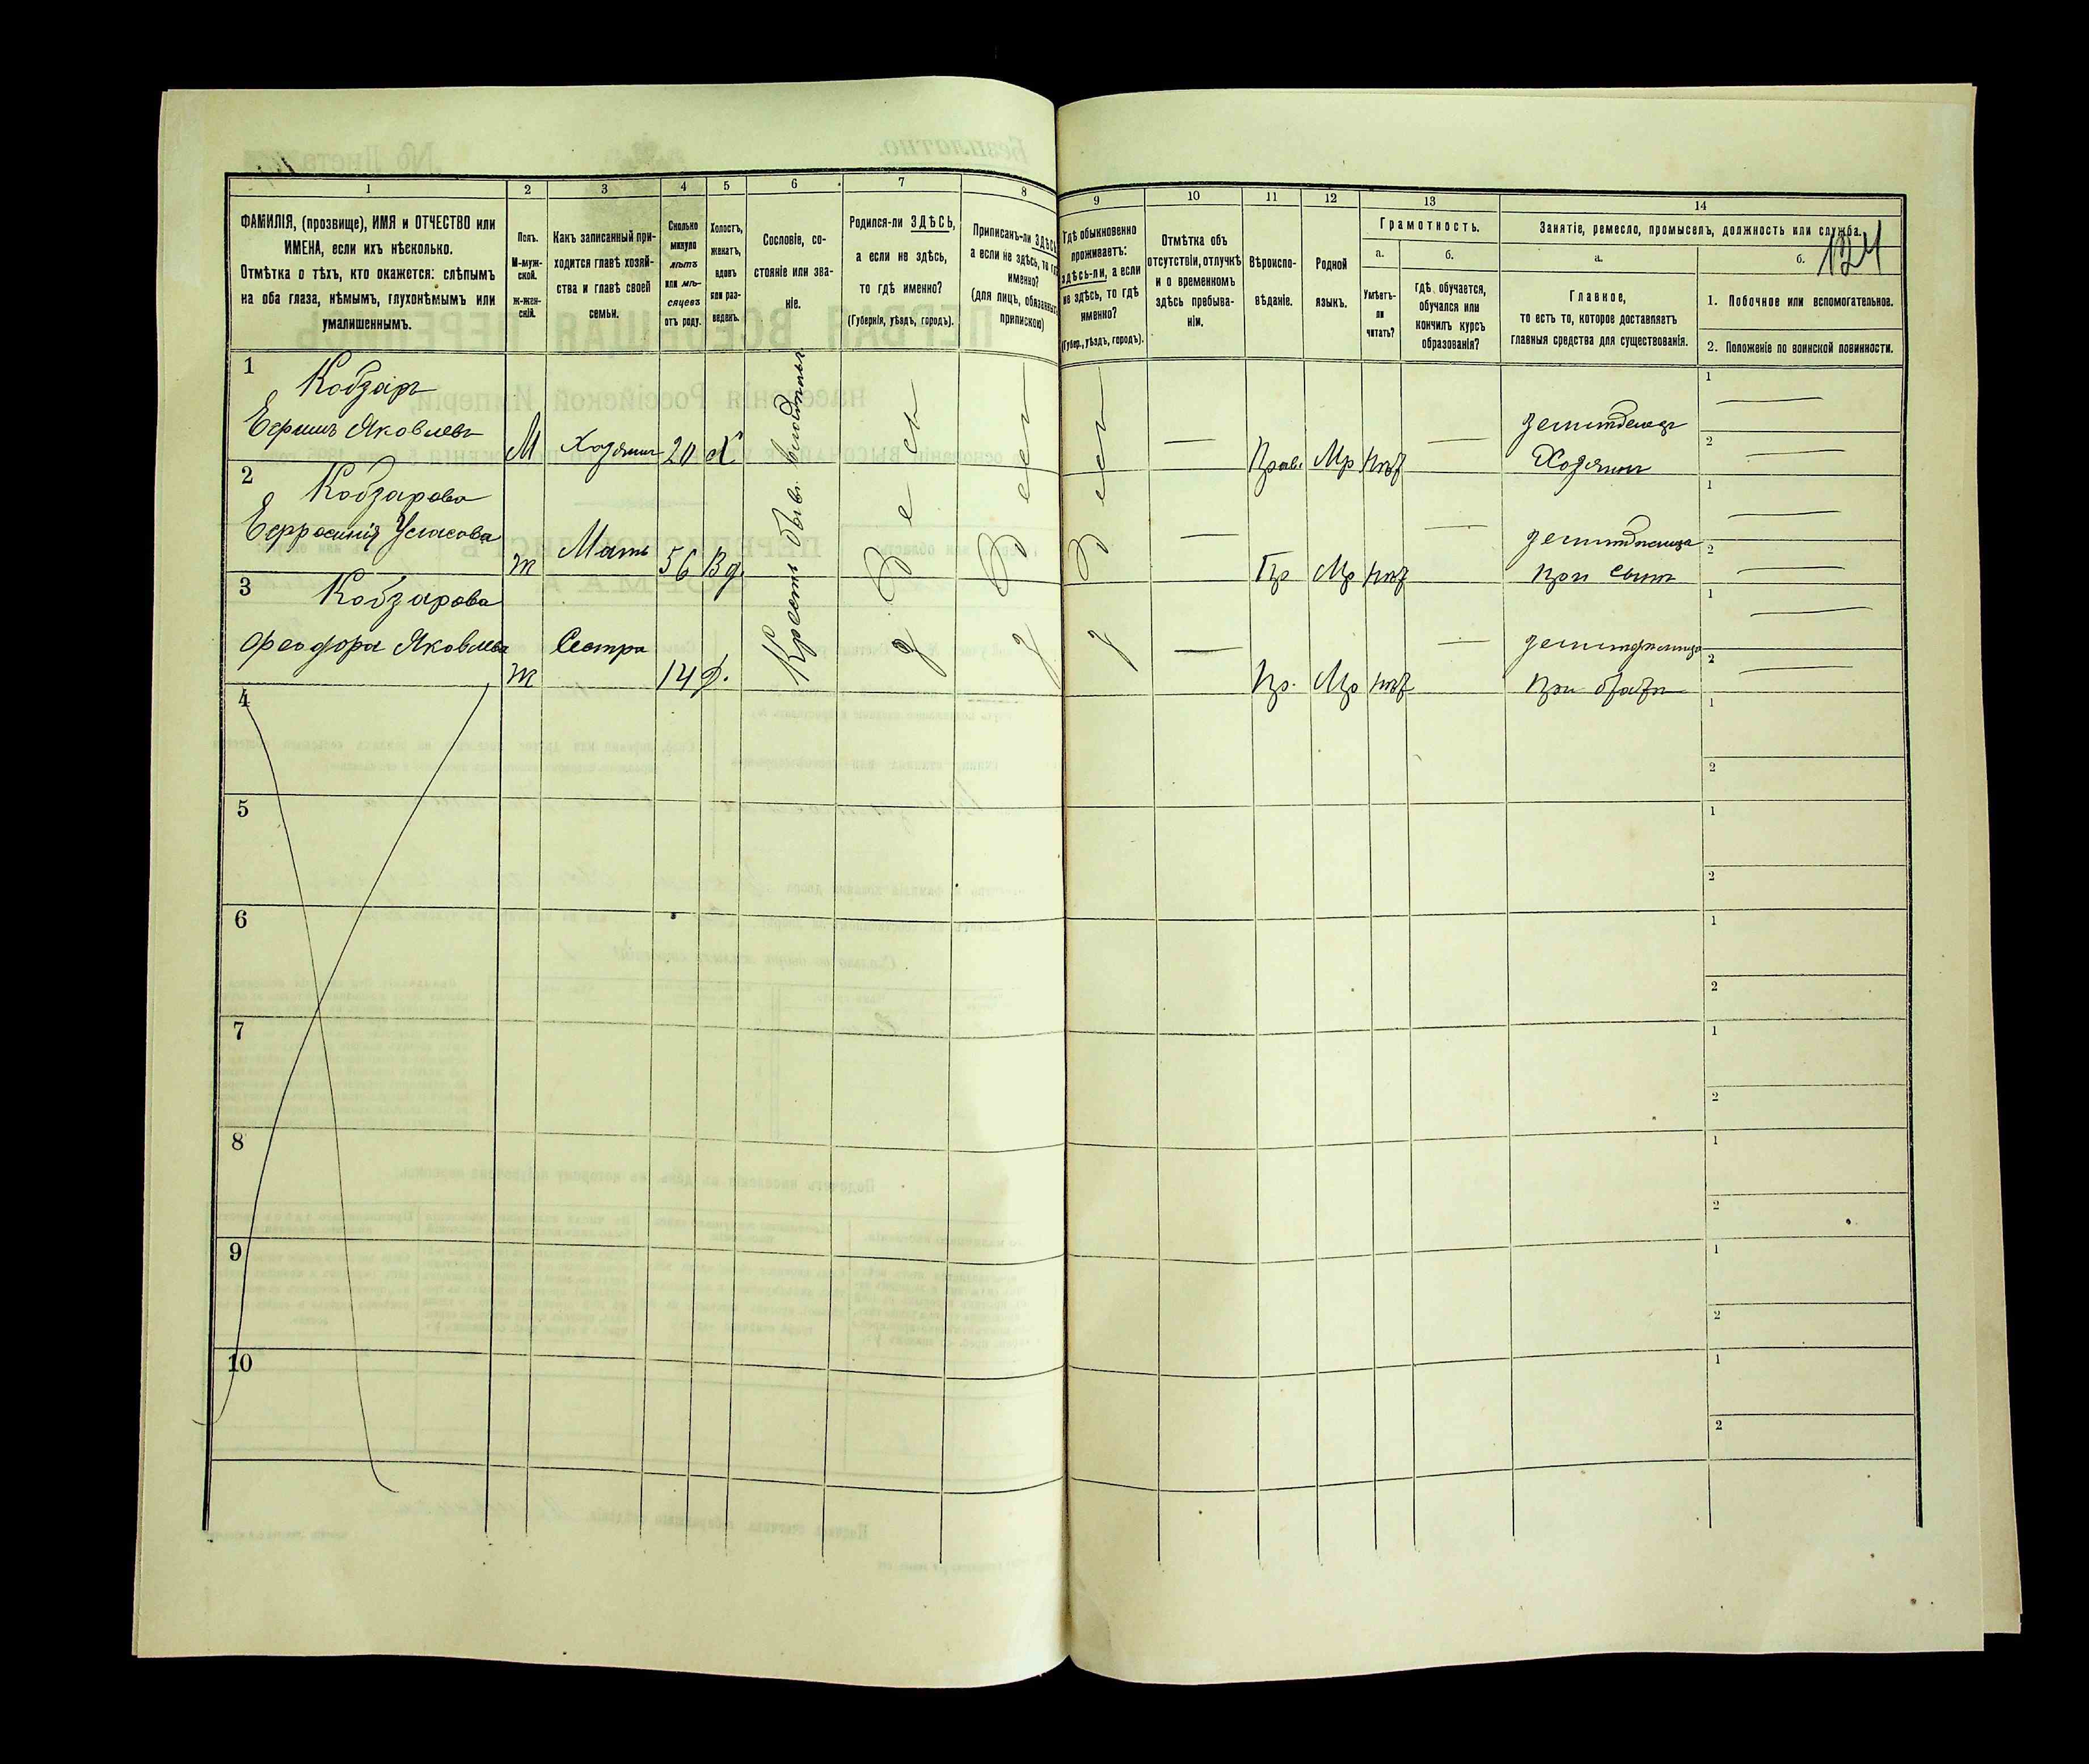 1 2 3 4 5 6 7 8
ФАМИЛІЯ, (прозвище), ИМЯ и ОТЧЕСТВО или
ИМЕНА, если ихъ нѣсколько.
Отмѣтка о тѣхъ, кто окажется: слѣпымъ
на оба глаза, нѣмымъ, глухонѣмымъ или
умалишеннымъ.
Полъ.
М-муж-
ской.
ж-жен-
скій.
Какъ записанный при-
ходится главѣ хозяй-
ства и главѣ своей
семьи.
Сколько
минуло
лѣтъ
или мѣ-
сяцевъ
отъ роду.
Холостъ,
женатъ,
вдовъ
или раз-
веденъ.
Сословіе, со-
стояніе или зва-
ніе.
Родился-ли ЗДѢСЬ,
а если не здѣсь,
то гдѣ именно?
(Губернія, уѣздъ, городъ).
Приписанъ-ли ЗДѢСЬ
а если не здѣсь, то гдѣ
именно?
(для лицъ, обязанныхъ
припискою)
1 Кобзарь
Ефимъ Яковлевъ
М Хозяинъ 20 Х
2 Кобзарова
Ефросинія
ж Мать 56 Вд.
3 Кобзарова
Феодора Яковлева
ж Сестра 14 Д.
Крест. бывш.
Здесь
Здесь
4
5
6
7
8
9
10
9 10 11 12 13 14
124
Гдѣ обыкновенно
проживаетъ:
здѣсь-ли, а если
не здѣсь, то гдѣ
именно?
(Губер., уѣздъ, городъ).
Отмѣтка объ
отсутствіи, отлучкѣ
и о временномъ
здѣсь пребыва-
ніи.
Вѣроиспо-
вѣданіе.
Родной
языкъ.
Грамотность.
а.
Умѣетъ-
ли
читать?
б.
гдѣ, обучается,
обучался или
кончилъ курсъ
образованія?
Занятіе, ремесло, промыселъ, должность или служба.
а.
Главное,
то есть то, которое доставляетъ
главныя средства для существованія.
б.
1. Побочное или вспомогательное.
2. Положеніе по воинской повинности.
Здесь
— Прав. Мр нѣт —
Хозяинъ
1 —
2 —
— Пр Мр нѣт —
при сынѣ
1 —
2 —
— Пр. Мр нѣт —
при братѣ
1 —
2 —
1
2
1
2
1
2
1
2
1
2
1
2
1
2